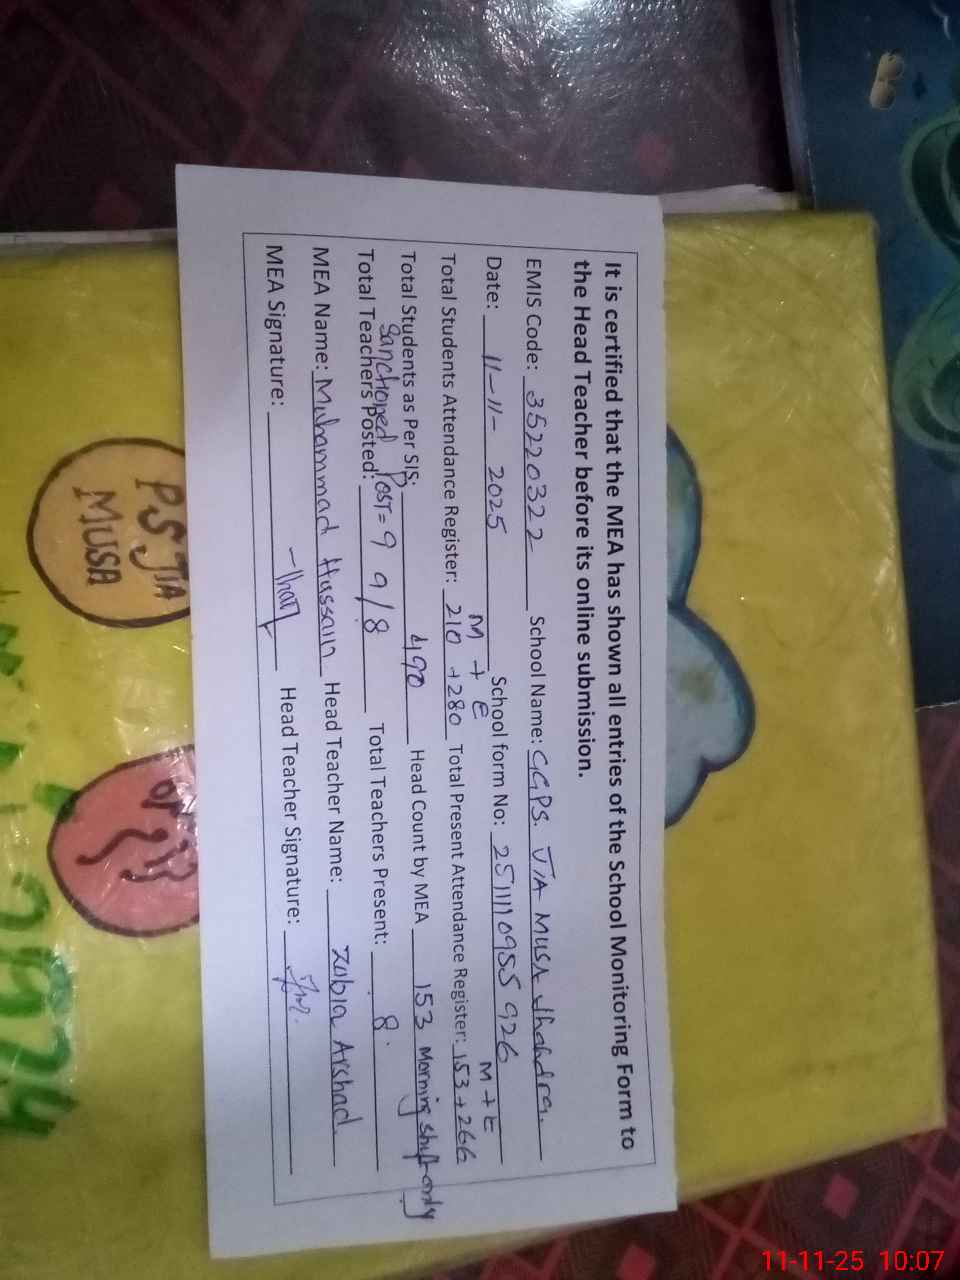 It is certified that the MEA has shown all entries of the School Monitoring Form to
the Head Teacher before its online submission.
EMIS Code: 35220322 School Name: GGPS. JIA MUSA Shahdra.
Date: 11-11-2025 School form No: 2511110955926
M + E M + E
Total Students Attendance Register: 210 +280 Total Present Attendance Register: 153+266
Total Students as Per SIS: 490 Head Count by MEA 153 Morning shift only
Sanctioned Post = 9
Total Teachers Posted: 9/8 Total Teachers Present: 8.
MEA Name: Muhammad Hussain Head Teacher Name: Zubia Arshad.
MEA Signature: Head Teacher Signature:
PS JIA
MUSA
11-11-25 10:07